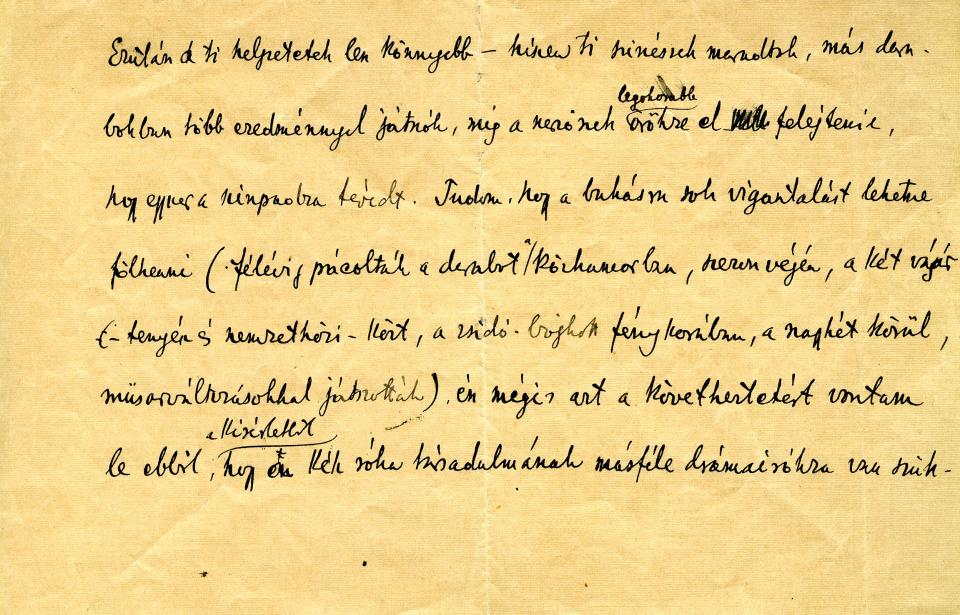 Ezután a ti helyzetetek len könnyebb – hiszen ti szinészek maradtok, más dara-
bokban több eredménnyel játszók, mig a szerzőnek legokosabb örökre el felejtenie,
hogy egyszer a szinpadra tévedt. Tudom, hogy a bukásra sok vigasztalást lehetne
fölhozni ( félévig pácolták a darabot közhumorban, szezon végén, a két vásár
– tenyész és nemzetközi – közt, a zsidó-bojkott fénykorában, a nagyhét körül,
müsorváltozásokkal játszották), én mégis azt a következtetést vontam
le ebből a kisérletből, hogy Kék róka társadalmának másféle drámairókra van szük-